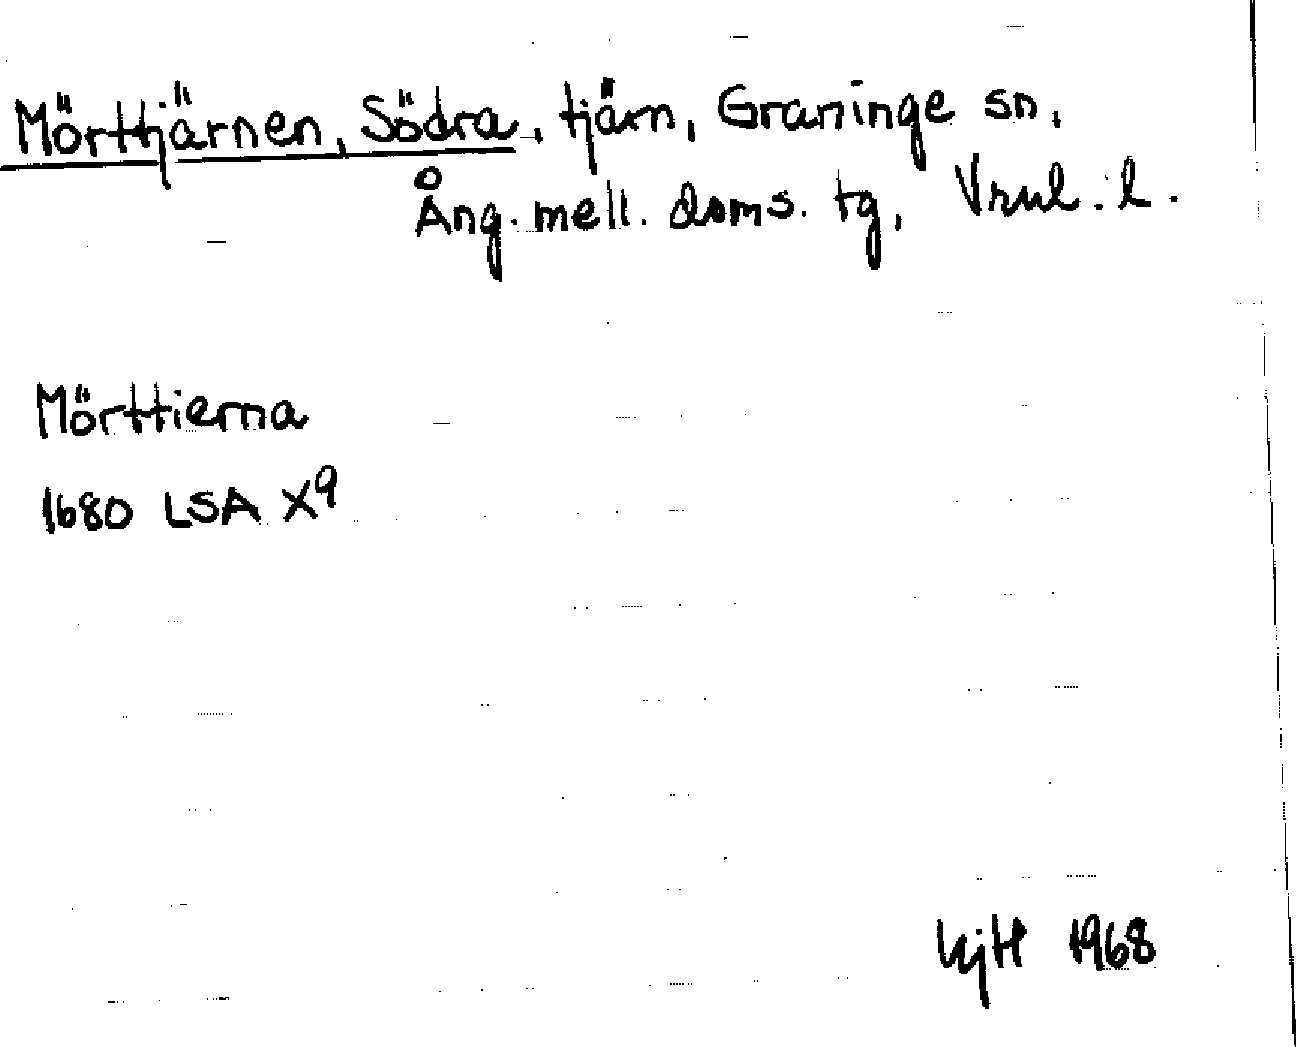 Mörttjärnen, Södra, tjärn, Graninge sn,
Ång. mell. doms. tg, Vrnl. l.
Mörttierna
1680 LSA X9
KjH 1968